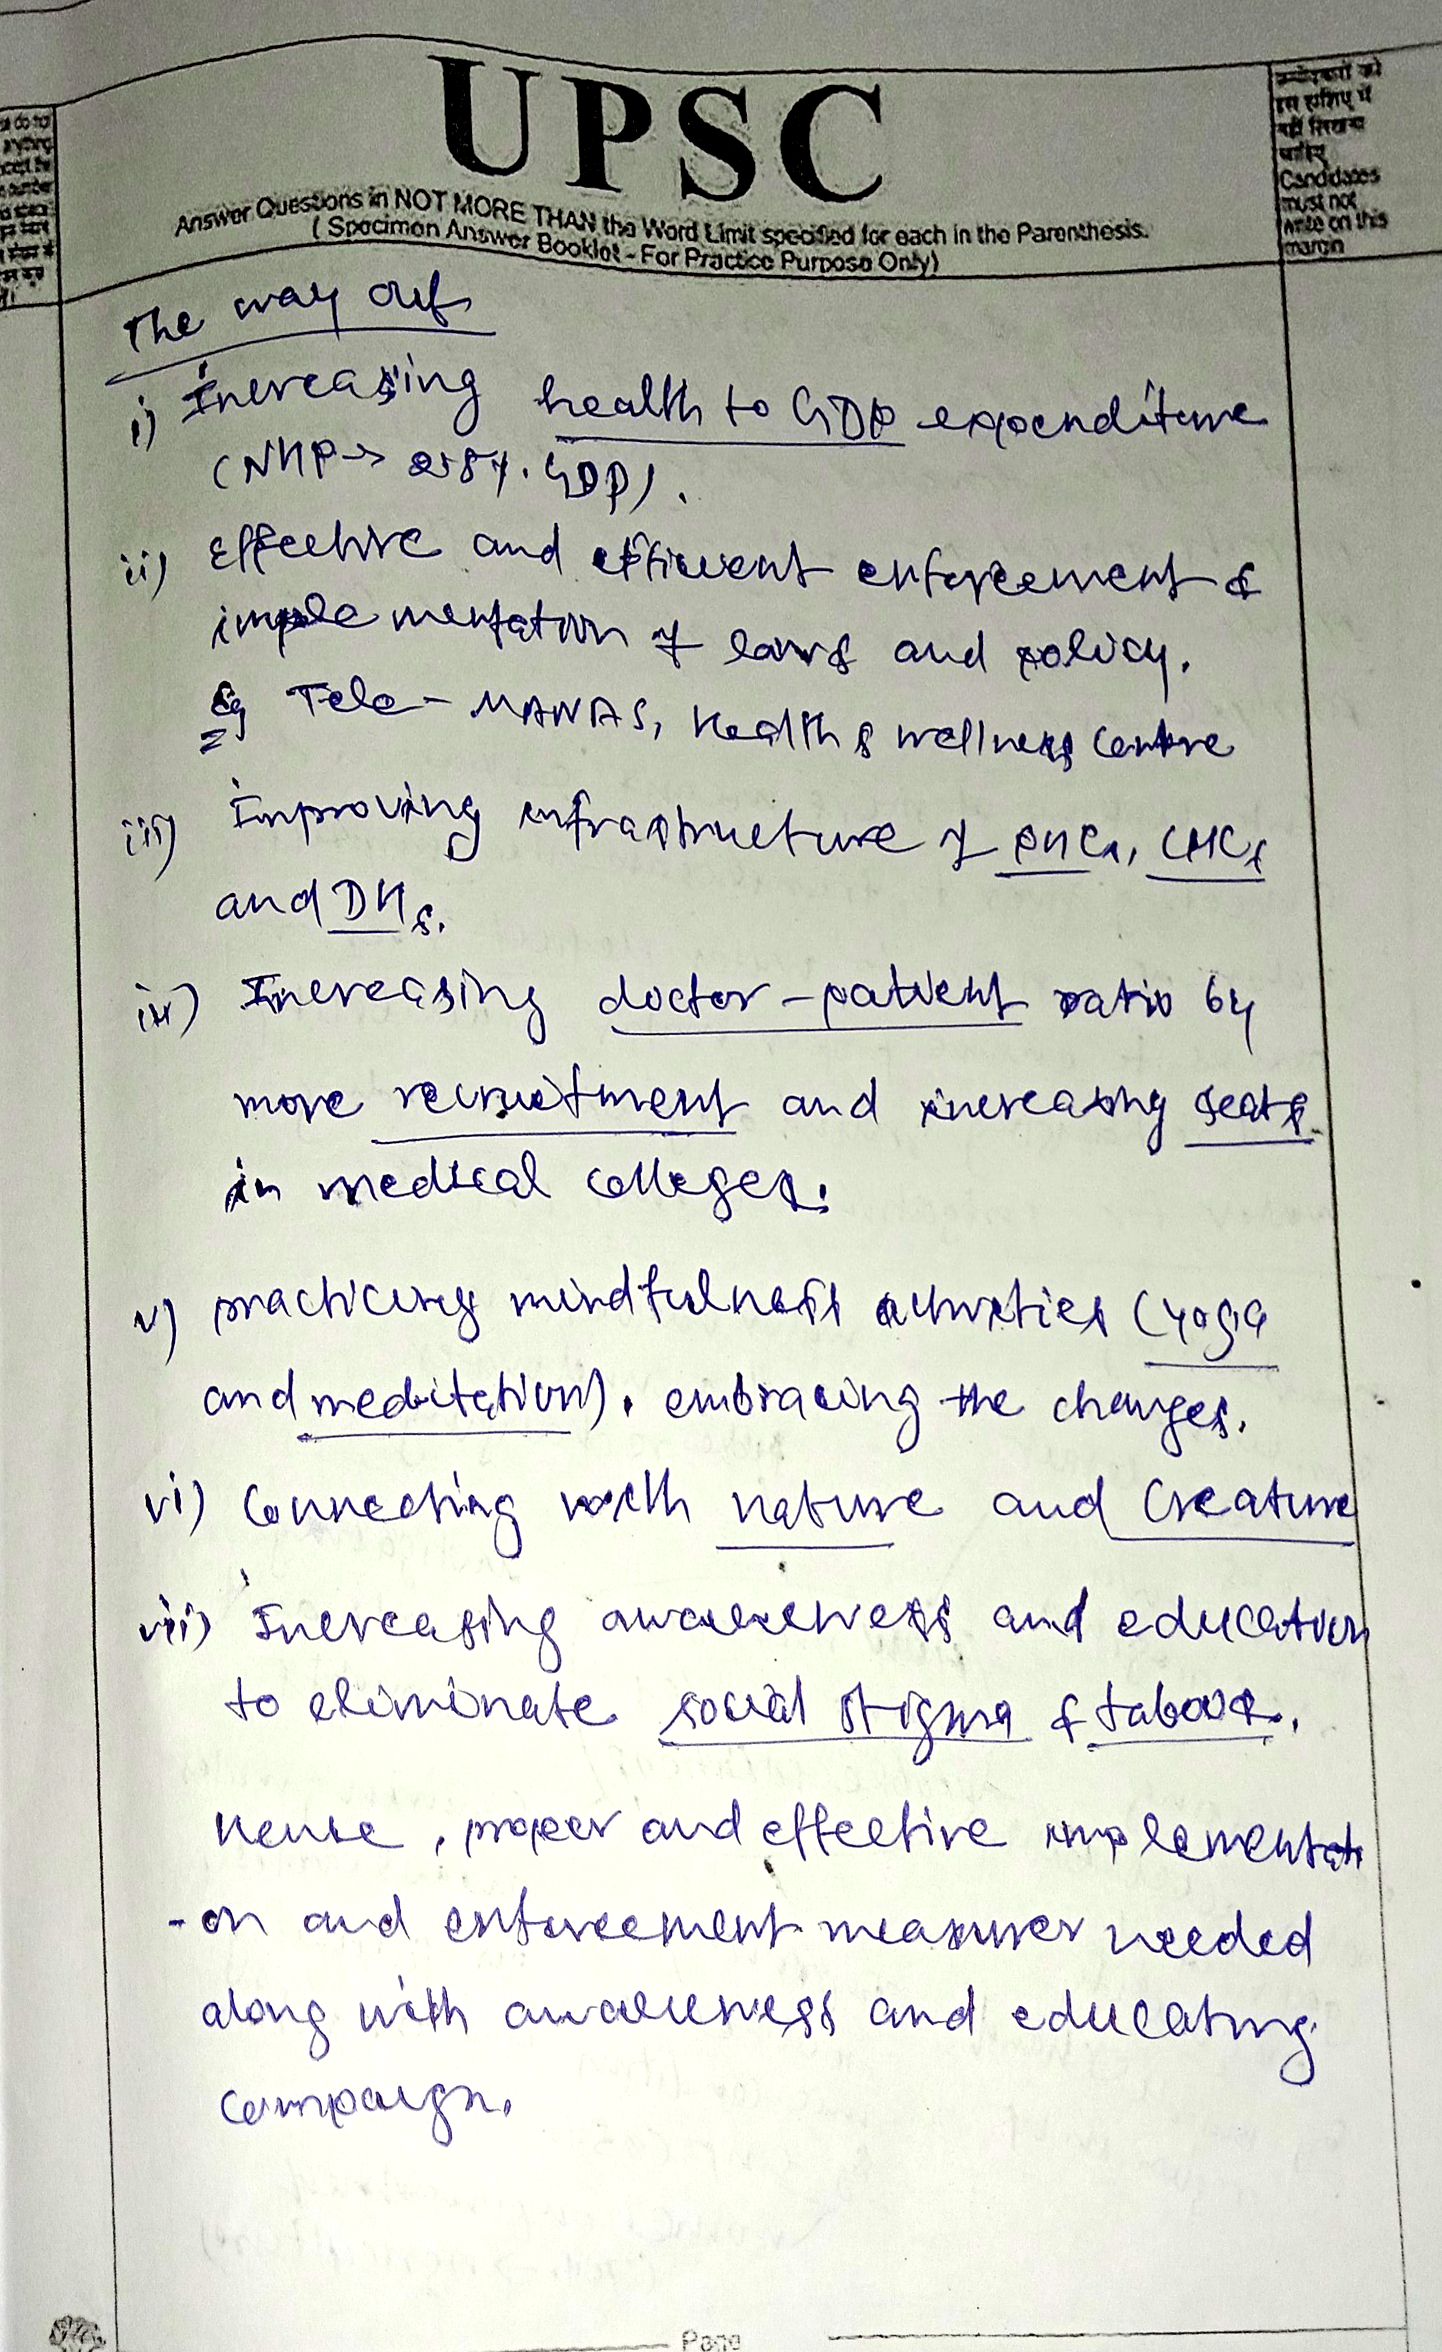 UPSC
Answer Questions in NOT MORE THAN the Word Limit specified for each in the Parenthesis.
( Specimen Answer Booklet - For Practice Purpose Only)
उम्मीदवारों को
इस हाशिए में
नहीं लिखना
चाहिए
Candidates
must not
write on this
margin
The way out
i) Increasing health to GDP expenditure
(NHP → 2.5%. GDP).
ii) Effective and efficient enforcement &
implementation of laws and policy.
Eg Tele-MANAS, Health & wellness centre
iii) Improving infrastructure of PHCs, CHCs
and DHs.
iv) Increasing doctor-patient ratio by
more recruitment and increasing seats
in medical colleges.
v) practicing mindfulness activities (yoga
and meditation). embracing the changes.
vi) Connecting with nature and Creature
vii) Increasing awareness and education
to eliminate social stigma & taboos.
Hence, proper and effective implementati
-on and enforcement measures needed
along with awareness and educating
campaign.
Page